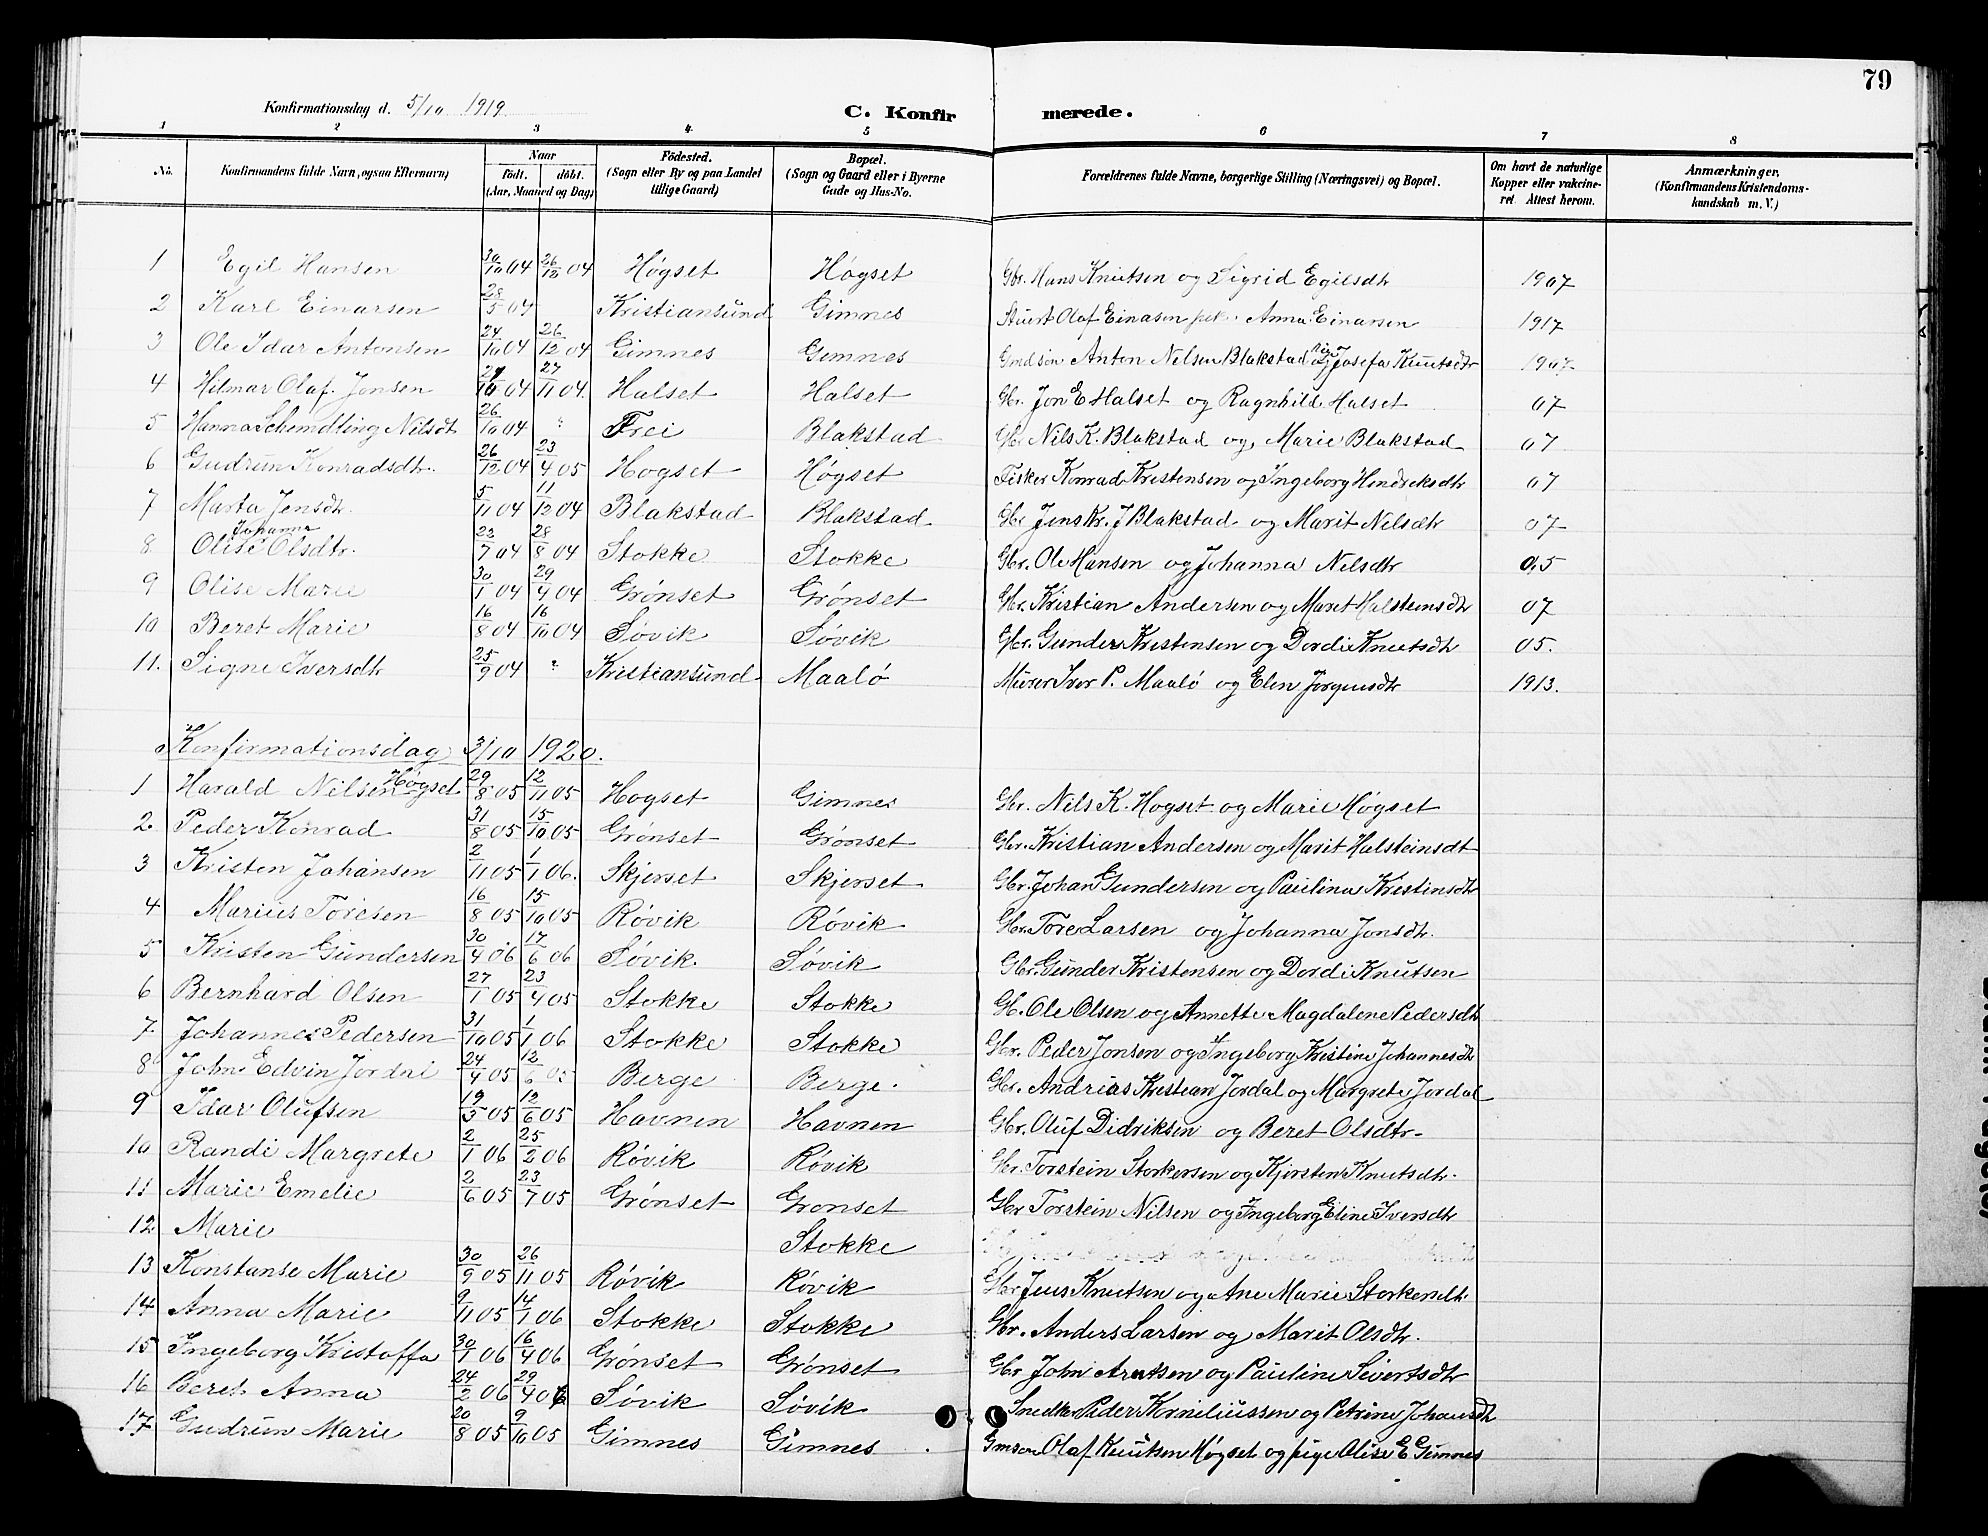 79
Konfirmationsdag d. 5/10 1919. C. Konfirmerede.
1 2 3 4 5 6 7 8
No. Konfirmandens fulde Navn, ogsaa Efternavn) Naar födt. döbt. (Aar, Maaned og Dag) Födested. (Sogn eller By og paa Landet tillige Gaard) Bopæl. (Sogn og Gaard eller i Byerne Gade og Hus-No. Forældrenes fulde Navne, borgerlige Stilling (Næringsvei) og Bopæl. Om havt de naturlige Kopper eller vakcineret. Attest herom. Anmærkninger. (Konfirmandens Kristendomskundskab m. V.)
1 Egil Hansen 30/10 04 26/12 04 Høgset Høgset Gbr. Hans Knutsen og Sigrid Egilsdtr 1907
2 Karl Einarsen 28/5 04 Kristiansund Gimnes Stuert Olaf Einasen Anna Einarsen 1917
3 Ole Idar Antonsen 24/10 04 26/12 04 Gimnes Gimnes Grdsøn Anton Nilsen Blakstad og Josefa Knutsdtr 1907
4 Hilmar Olaf Jonsen 27/11 04. Halset Halset Gbr. Jon E Halset og Ragnhild Halset 07
5 Hanna Schmdling Nilsdt 26/10 04 " Frei Blakstad Gbr Nils K. Blakstad og Marie Blakstad 07
6 Gudrun Konradsdtr. 26/12 04 23/4 05 Hogset Høgset Fisker Konrad Kristensen og Ingeborg Hendriksdtr 07
7 Marta Jensdtr. 5/11 04 11/12 04 Blakstad Blakstad Gbr Jens Kr. J Blakstad og Marit Nilsdtr 07
8 Olise Johanna Olsdtr. 23/7 04 28/8 04 Stokke Stokke Gbr. Ole Hansen og Johanna Nilsdtr 05
9 Olise Marie 30/1 04 29/4 04 Grønset Grønset Gbr. Kristian Andersen og Maret Halsteinsdtr 07
10 Beret Marie 16/8 04 16/10 04 Søvik Søvik Gbr. Gunder Kristensen og Dordi Knutsdtr 05.
11. Signe Iversdtr 25/9 04 " Kristiansund Maalø Murer Iver P. Maalø og Elen Jørgensdtr 1913.
Konfirmationsdag 3/10 1920.
1 Harald Nilsen Høgset 29/8 05 12/11 05 Hogset Gimnes Gbr. Nils K. Hogset og Marie Høgset
2 Peder Konrad 31/8 05 15/10 05 Grønset Grønset Gbr. Kristian Andersen og Marit Halsteinsdt
3 Kristen Johansen 2/11 05 1/1 06. Skjerset Skjerset Gbr. Johan Gundersen og Paulina Kristinsdtr
4 Marius Toresen 16/8 05 15/10 05 Røvik Røvik Gbr. Tore Larsen og Johanna Jonsdtr.
5 Kristen Gundersen 30/4 06 17/6 06 Søvik. Søvik Gbr. Gunder Kristensen og Dordi Knutsen
6 Bernhard Olsen 27/1 05 23/4 05 Stokke Stokke Gbr. Ole Olsen og Annette Magdalene Pedersdtr
7. Johannes Pedersen 31/10 05 1/1 06 Stokke Stokke Gbr. Peder Jonsen og Ingeborg Kristine Johannesdtr
8 John Edvin Jordal 24/4 05 12/6 05 Berge Berge. Gbr. Andrias Kristian Jordal og Margrete Jordal
9 Idar Olufsen 19/5 05 12/6 05 Havnen Havnen Gbr. Oluf Didriksen og Beret Olsdtr.
10 Randi Margrete 2/1 06 25/2 06 Røvik Røvik Gbr. Torstein Storkersen og Kjersten Knutsdtr.
11 Marie Emelie 2/6 05 23/7 05 Grønset Grønset Gbr Torstein Nilsen og Ingeborg Eline Iversdtr
12 Marie Stokke
13 Konstanse Marie 30/9 05 26/11 05 Røvik Røvik Gbr Jens Knutsen og Ane Marie Storkersdtr.
14 Anna Marie 9/11 05 14/1 06 Stokke Stokke Gbr. Anders Larsen og Marit Olsdtr.
15 Ingeborg Kristoffa 30/1 06 16/4 06 Grønset Grønset Gbr John Arntsen og Pauline Sivertsdtr
16 Beret Anna 24/2 06 29/4 06 Søvik Søvik Snedker Peder Korneliussen og Petrine Johansdtr
17 Gudrun Marie 20/8 05 9/10 05 Gimnes Gimnes Gmsøn Olaf Knutsen Høgset og pige Olise E Gimnes